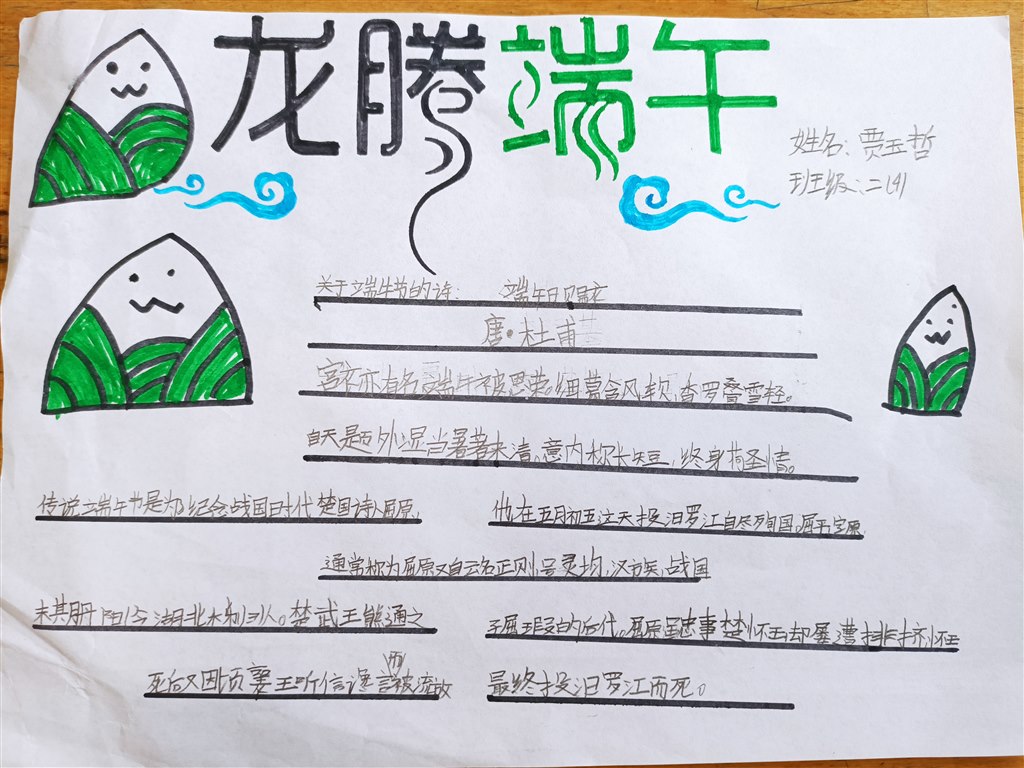 龙腾端午
姓名:贾玉哲
班级:二(4)
关于端午节的诗: 端午日赐衣
唐·杜甫
宫衣亦有名,端午被恩荣。细葛含风软,香罗叠雪轻。
自天题外湿,当暑著来清。意内称长短,终身荷圣情。
传说端午节是为纪念战国时代楚国诗人屈原,
他在五月初五这天投汨罗江自尽殉国,屈平字原
通常称为屈原又自云名正则,号灵均,汉族,战国
末其丹阳今湖北秭归人。楚武王熊通之
子屈瑕的后代。屈原虽忠事楚怀王却屡遭排挤怀王
死后又因顷襄王听信谗言而被流放
最终投汨罗江而死。